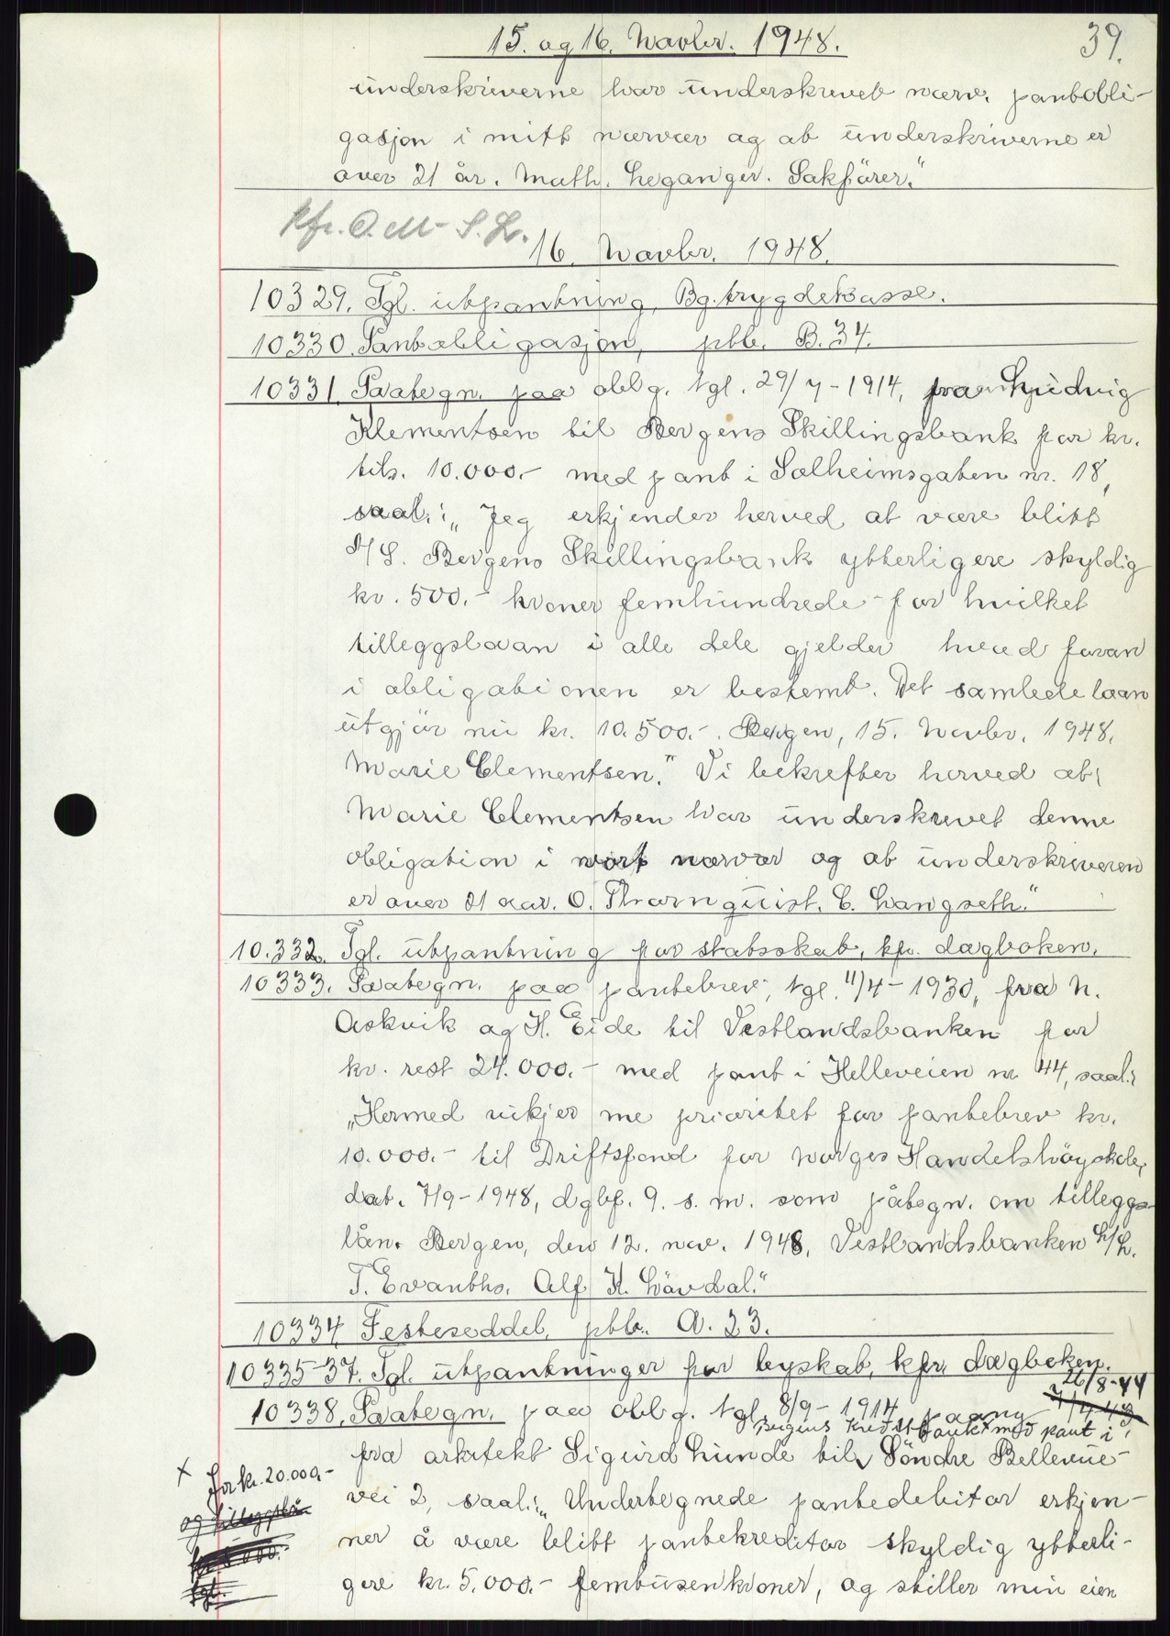 15. og 16. Novbr. 1948.
39.
underskriverne har underskrevet nærv. pantobli-
gasjon i mitt nærvær og at underskriverne er
over 21 år. Math. Leganger. Sakfører."
kfr. O.M- S.L.
16. Novbr. 1948.
10329. Tgl. utpantning, Bg. trygdekasse.
10330. Pantobligasjon, ptb. B. 34.
10331. Paategn. paa oblg. tgl. 29/7-1914, fra Ludvig
Klementsen til Bergens Skillingsbank for kr.
tils. 10.000.- med pant i Solheimsgaten nr. 18,
saal.: „Jeg erkjender herved at være blitt
A/S. Bergens Skillingsbank ytterligere skyldig
kr. 500.- kroner femhundrede - for hvilket
tilleggslaan i alle dele gjelder hvad foran
i obligationen er bestemt. Det samlede laan
utgjør nu kr. 10.500.-. Bergen, 15. Novbr. 1948.
Marie Clementsen." Vi bekrefter herved at
Marie Clementsen har underskrevet denne
obligation i vort nærvær og at underskriveren
er over 21 aar. O. Thornquist. C. Langseth."
10.332. Tgl. utpantning for statsskat, kfr. dagboken.
10333. Paategn. paa pantebrev, tgl. 11/4-1930, fra N.
Askvik og H. Eide til Vestlandsbanken for
kr. rest 24.000.- med pant i Helleveien nr. 44, saal.:
„Hermed vikjer me prioritet for pantebrev kr.
10.000.- til Driftsfond for Norges Handelshøyskole,
dat. 7/9-1948, dgbf. 9. s. m. som påtegn. om tilleggs-
lån. Bergen, den 12. nov. 1948. Vestlandsbanken A/L.
T. Evanths. Alf H. Løvdal."
10334 Festeseddel, ptb. A. 23.
10335-37. Tgl. utpantninger for byskat, kfr. dagboken.
26/8-44
10338. Paategn. paa oblg. tgl. 8/9-1914
Bergens Kreditbank x med pant i
fra arkitekt Sigurd Lunde til Søndre Bellevue-
x for kr. 20.000.-
vei 2, saal.: „Undertegnede pantedebitor erkjen-
og tilleggslån
ner å være blitt pantekreditor skyldig ytterli-
tgl.
gere kr. 5.000.- femtusenkroner, og stiller min eien